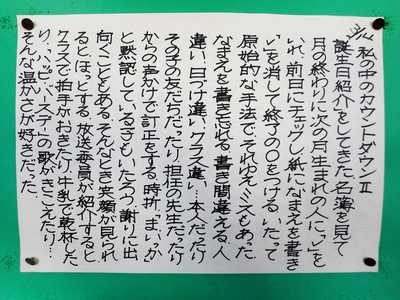 私の中のカウントダウンⅡ
誕生日紹介をしてきた。名簿を見て
月の終わりに次の月生まれの人に「レ」を
いれ、前日にチェックし紙になまえを書き
「レ」を消して終了の〇をつける。いたって
原始的な手法で、それゆえミスもあった。
なまえを書き忘れる、書き間違える、人
違い、日づけ違い、クラス違い…本人だったり
その子の友だちだったり、担任の先生だったり
からの声かけで訂正をする。時折、「まいっか」
と黙認している子もいたろう。謝りに出
向くこともある。そんなとき笑顔が見られ
るとほっとする。放送委員が紹介すると
クラスで拍手がおきたり、牛乳で乾杯した
り、ハッピーバースデーの歌がきこえたり…
そんな温かさが好きだった。